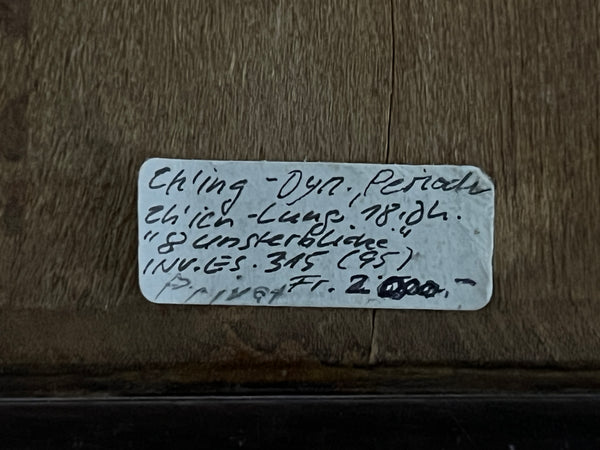 Ch'ing-Dyn., Periode
Ch'ien-Lung, 18.Jh.
"8 Unsterbliche"
INV.ES.315 (95)
Privat Fr. 2'000.-